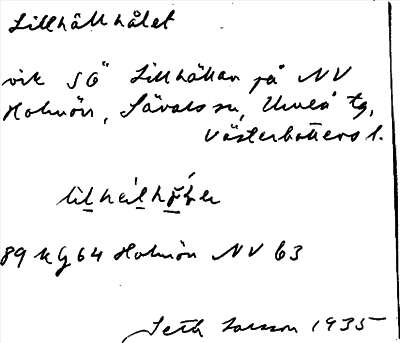 Lillhällhålet
vik SO Lillhällan på NV
Holmön, Sävars sn, Umeå tg,
Västerbottens l.
89 Kg 64 Holmön NV 63
Seth Larsson 1935